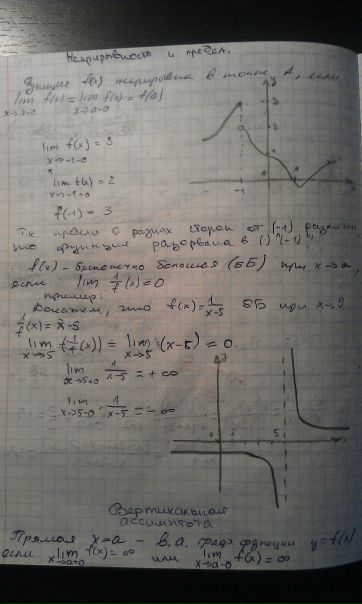 Непрерывность и предел.
Функция f(x) непрерывна в точке A, если
lim f(x) = lim f(x) = f(a)
x→a-0 x→a-0
lim f(x) = 3
x→-1-0
lim f(x) = 2
x→-1+0
f(-1) = 3
y
3
2
1
-1 0 1 x
Т.к. пределы с разных сторон от (-1) различны
то функция разорвана в (·) "(-1)"
f(x) - бесконечно большая (ББ) при x→a,
если lim 1/f(x) = 0
пример:
Докажем, что f(x) = 1/x-5 ББ при x→5
1/f(x) = x-5
lim (1/f(x)) = lim (x-5) = 0.
x→5 x→5
lim 1/x-5 = +∞
x→5+0
lim 1/x-5 = -∞
x→5-0
y
0 1 5 x
Вертикальная
ассимптота
Прямая x=a - в.а. граф. функции y=f(x)
если lim f(x) = ∞ или lim f(x) = ∞
x→a+0 x→a-0